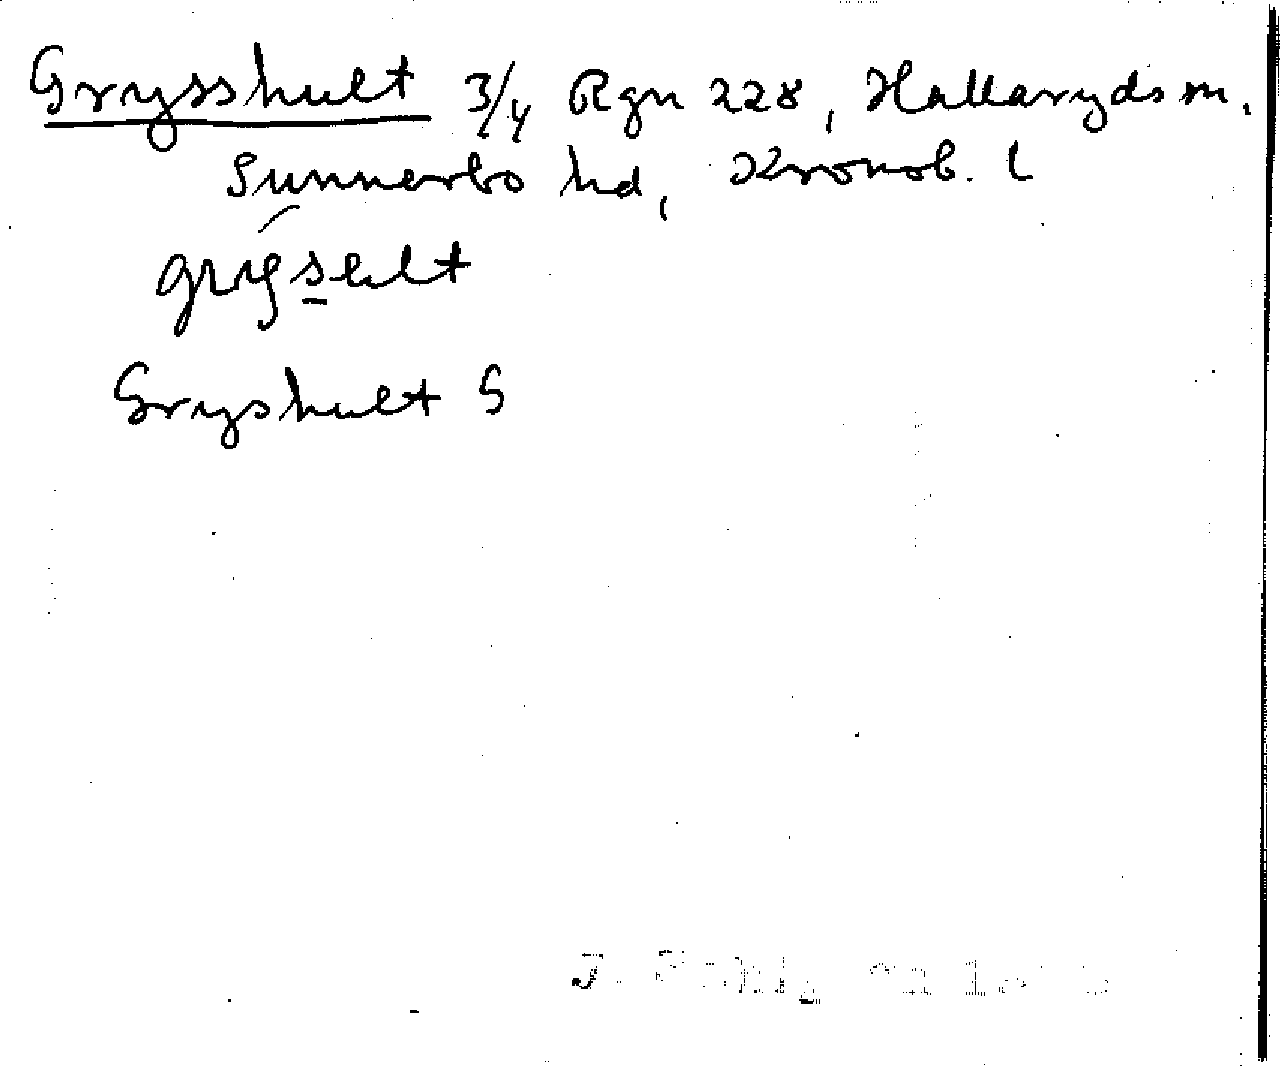 Grysshult 3/4 Rgn 228, Hallaryds sn,
Sunnerbo hd, Kronob. l
Gryshult S